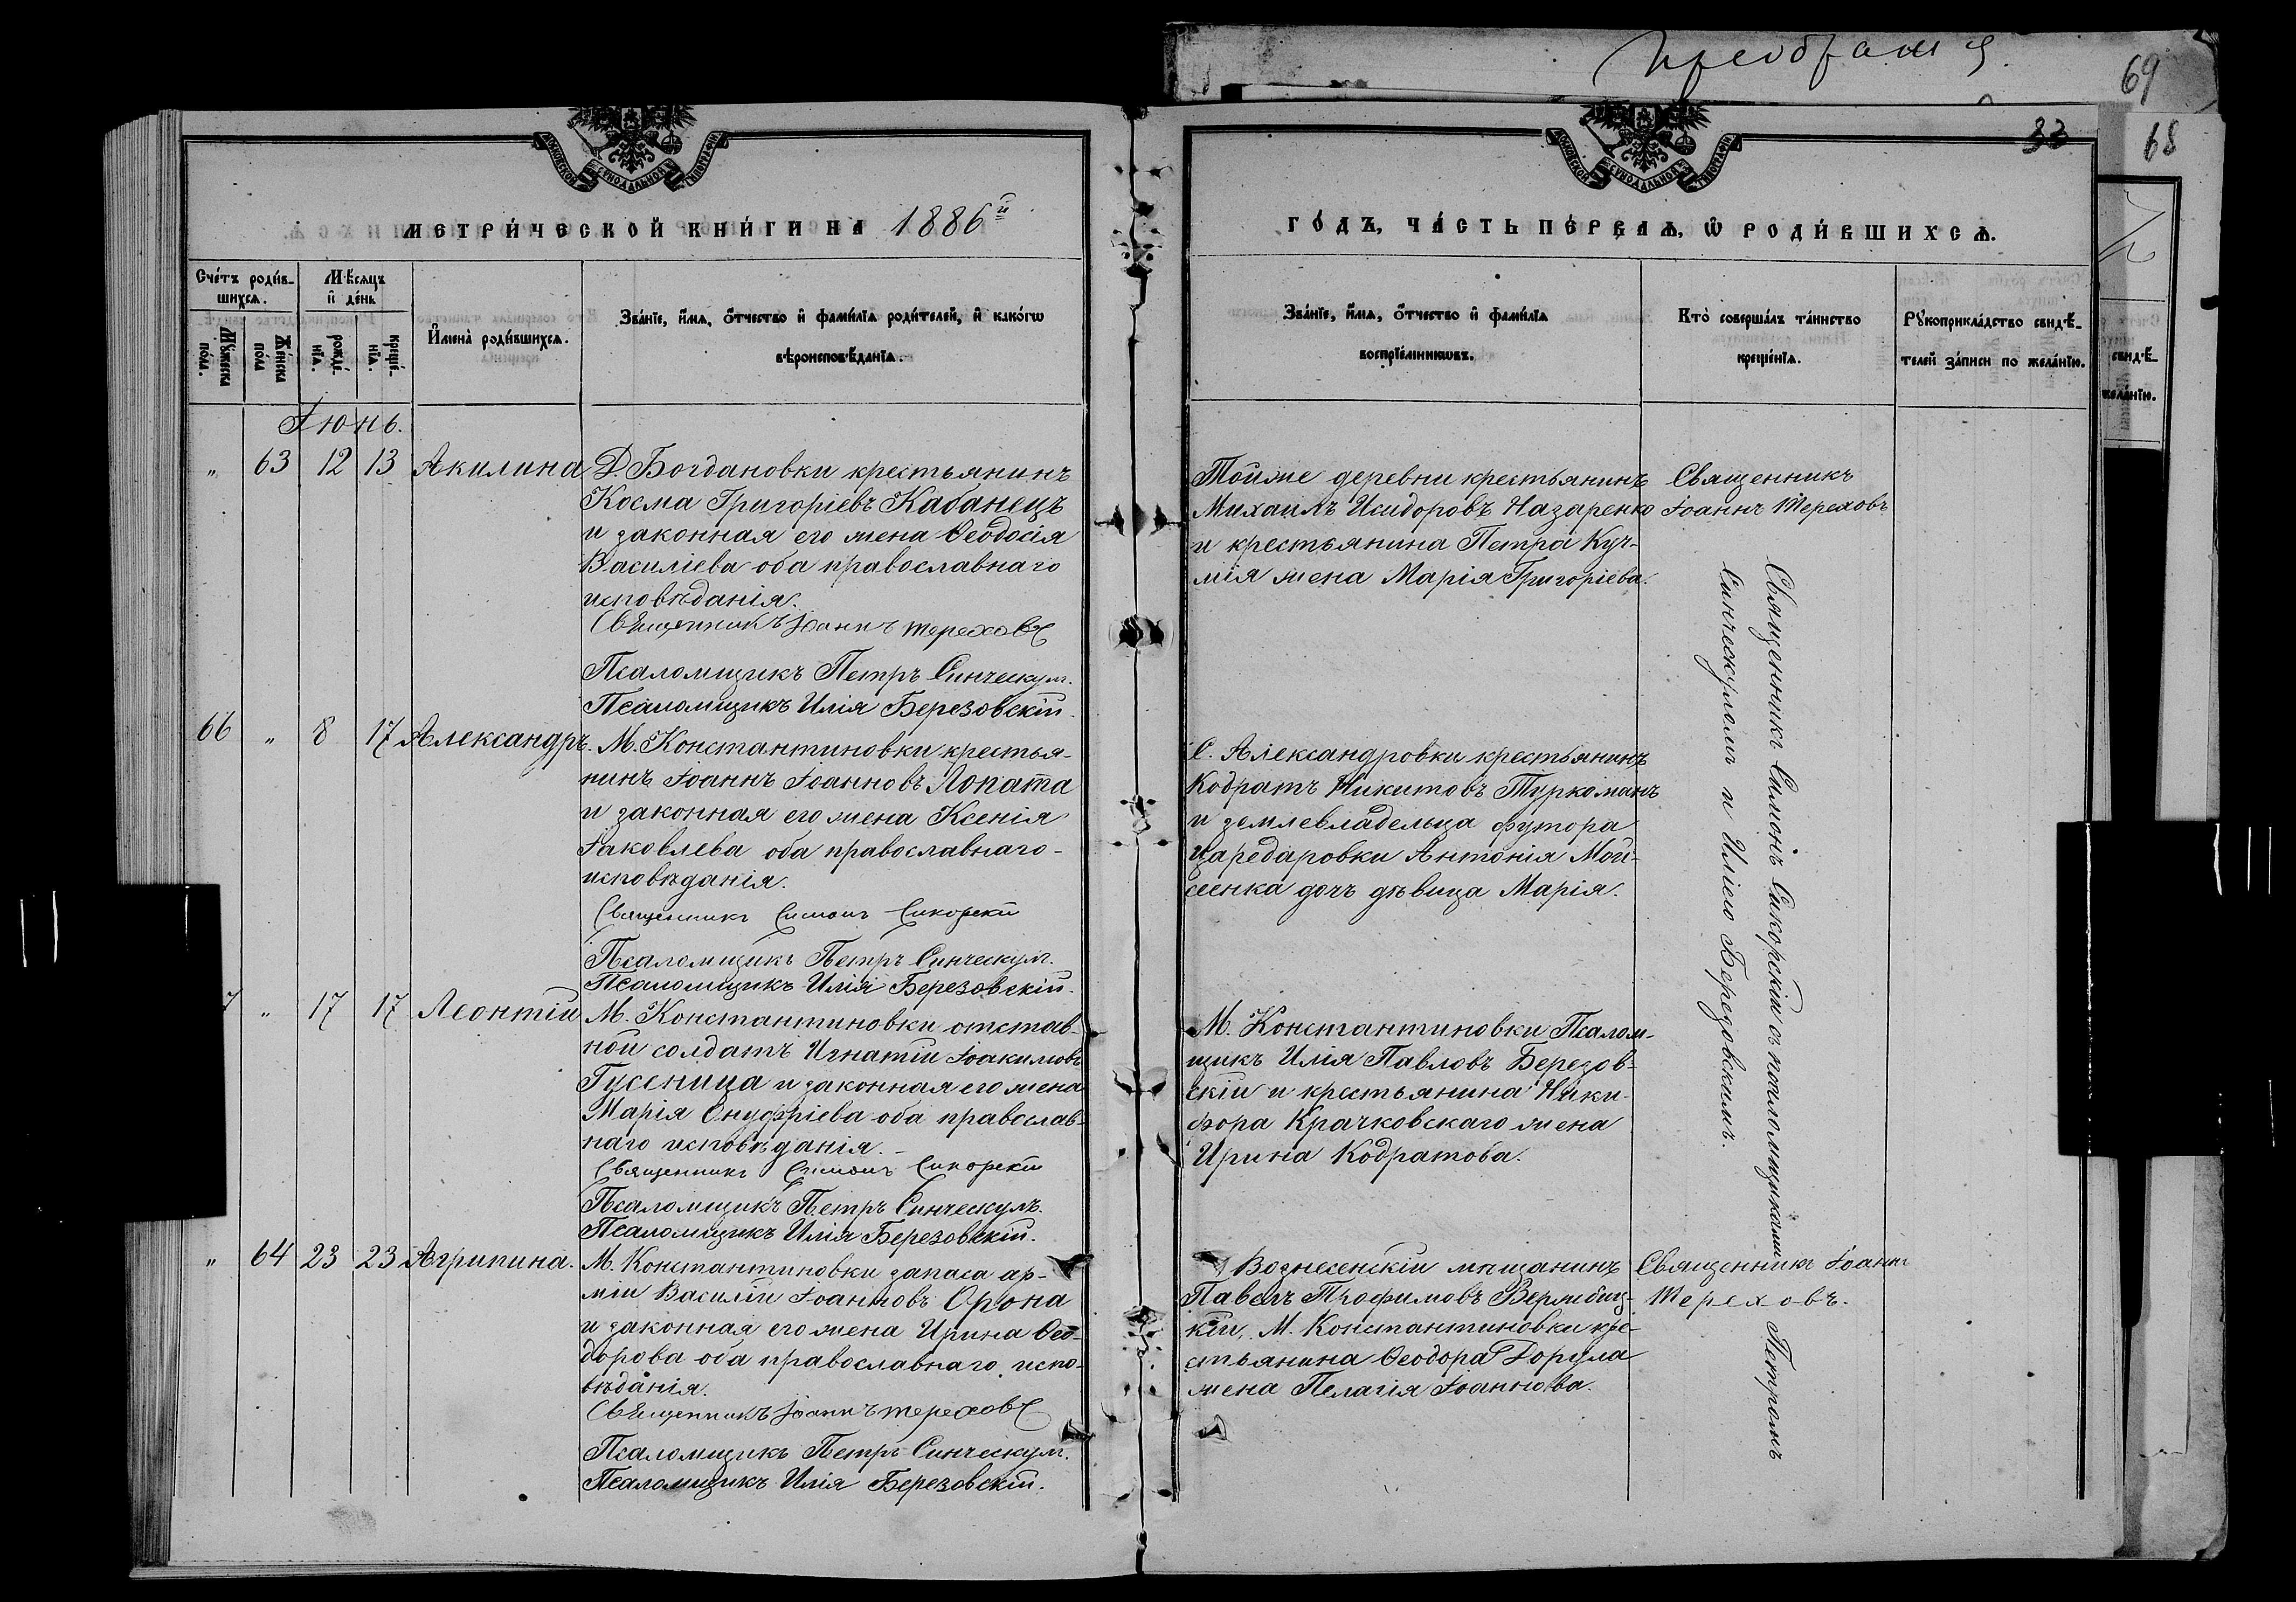 Преображ
69
68
33
МОСКОВСКОЙ СУНОДАЛЬНОЙ ТИПОГРАФІИ
МОСКОВСКОЙ СУНОДАЛЬНОЙ ТИПОГРАФІИ
МЕТРИ́ЧЕСКОЙ КНИ́ГИ НА 1886й
ГО́ДЪ, ЧА́СТЬ ПЕ́РВАѦ, Ѡ҆ РОДИ́ВШИХСѦ.
Сче́тъ роди́в-
шихсѧ.
Мѣ́сѧцъ
и҆ де́нь
Му́жеска
по́ла.
Же́нска
по́ла
рожде́-
нїѧ.
креще́-
нїѧ.
И҆мена̀ роди́вшихсѧ.
Зва́нїе, и҆́мѧ, ѻ҆́тчество и҆ фами́лїѧ роди́телей, и҆ како́гѡ
вѣроисповѣ́данїѧ.
Зва́нїе, и҆́мѧ, ѻ҆́тчество и҆ фами́лїѧ
воспрїе́мникѡвъ.
Кто̀ соверша́лъ та́инство
креще́нїѧ.
Рꙋкоприкла́дство свидѣ́-
телей за́писи по жела́нїю.
свидѣ́-
жела́нїю.
Іюнь.
„ 63 12 13 Акилина
Д. Богдановки крестьянинъ
Косма Григоріевъ Кабанецъ
и законная его жена Ѳеодосія
Василіева оба православнаго
исповѣданія.
Священникъ Іоаннъ Тереховъ
Псаломщикъ Петръ Синческулъ.
Псаломщикъ Илія Березовскій.
Тойже деревни крестьянинъ
Михаилъ Исидоровъ Назаренко
и крестьянина Петра Куч-
мія жена Марія Григоріева.
Священникъ
Іоаннъ Тереховъ
66 „ 8 17 Александръ.
М. Константиновки крестья-
нинъ Іоаннъ Іоанновъ Лопата
и законная его жена Ксенія
Іаковлева оба православнаго
исповѣданія.
Священникъ Симонъ Сикорскій
Псаломщикъ Петръ Синческулъ.
Псаломщикъ Илія Березовскій.
С. Александровки крестьянинъ
Кодратъ Никитовъ Туркоманъ
и землевладельца футора
Царедаровки Антонія Мой-
сеенка дочь дѣвица Марія.
Священникъ Симонъ Сикорскій съ псаломщиками Петромъ
Синческуломъ и Иліею Березовскимъ.
7 „ 17 17 Леонтій
М. Константиновки отстав-
ной солдатъ Игнатій Іоакимовъ
Гусеница и законная его жена
Марія Онуфріева оба православ-
наго исповѣданія.
Священникъ Симонъ Сикорскій
Псаломщикъ Петръ Синческулъ.
Псаломщикъ Илія Березовскій.
М. Константиновки Псалом-
щикъ Илія Павловъ Березов-
скій и крестьянина Ники-
фора Крачковскаго жена
Ирина Кодратова.
„ 64 23 23 Агрипина.
М. Константиновки запаса ар-
міи Василій Іоанновъ Орона
и законная его жена Ирина Ѳео-
дорова оба православнаго испо-
вѣданія.
Священникъ Іоаннъ Тереховъ
Псаломщикъ Петръ Синческулъ.
Псаломщикъ Илія Березовскій.
Вознесенскій мѣщанинъ
Павелъ Трофимовъ Вержбиц-
кій, М. Константиновки кре-
стьянина Ѳеодора Горула
жена Пелагія Іоаннова.
Священникъ Іоаннъ
Тереховъ.